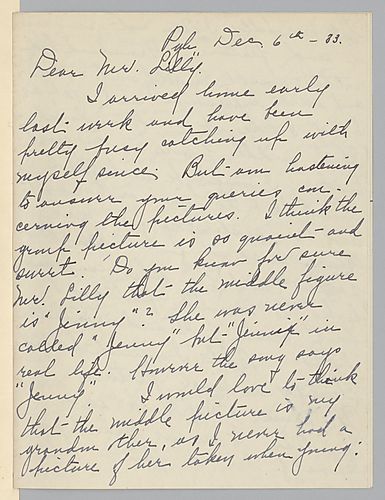 Pgh. Dec. 6th - 33.
Dear Mr. Lilly.
I arrived home early
last week and have been
pretty busy catching up with
myself since. But am hastening
to answer your queries con-
cerning the pictures. I think the
group picture is so quaint and
sweet. Do you know for sure
Mr. Lilly that the middle figure
is "Jenny"? She was never
called "Jenny" but "Jennie" in
real life. However the song says
"Jenny". I would love to think
that the middle picture is my
grandmother, as I never had a
picture of her taken when young.